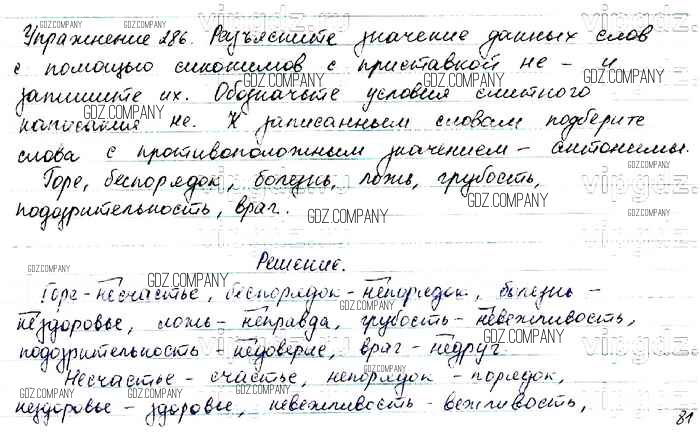 Упражнение 286. Разъясните значение данных слов
с помощью синонимов с приставкой не- и
запишите их. Обозначьте условия слитного
написания не. К записанным словам подберите
слова с противоположным значением - антонимы.
Горе, беспорядок, болезнь, ложь, грубость,
подозрительность, враг.
Решение.
Горе - несчастье, беспорядок - непорядок, болезнь -
нездоровье, ложь - неправда, грубость - невежливость,
подозрительность - недоверие, враг - недруг.
Несчастье - счастье, непорядок - порядок,
нездоровье - здоровье, невежливость - вежливость,
81
GDZ.COMPANY
vipgdz.ru